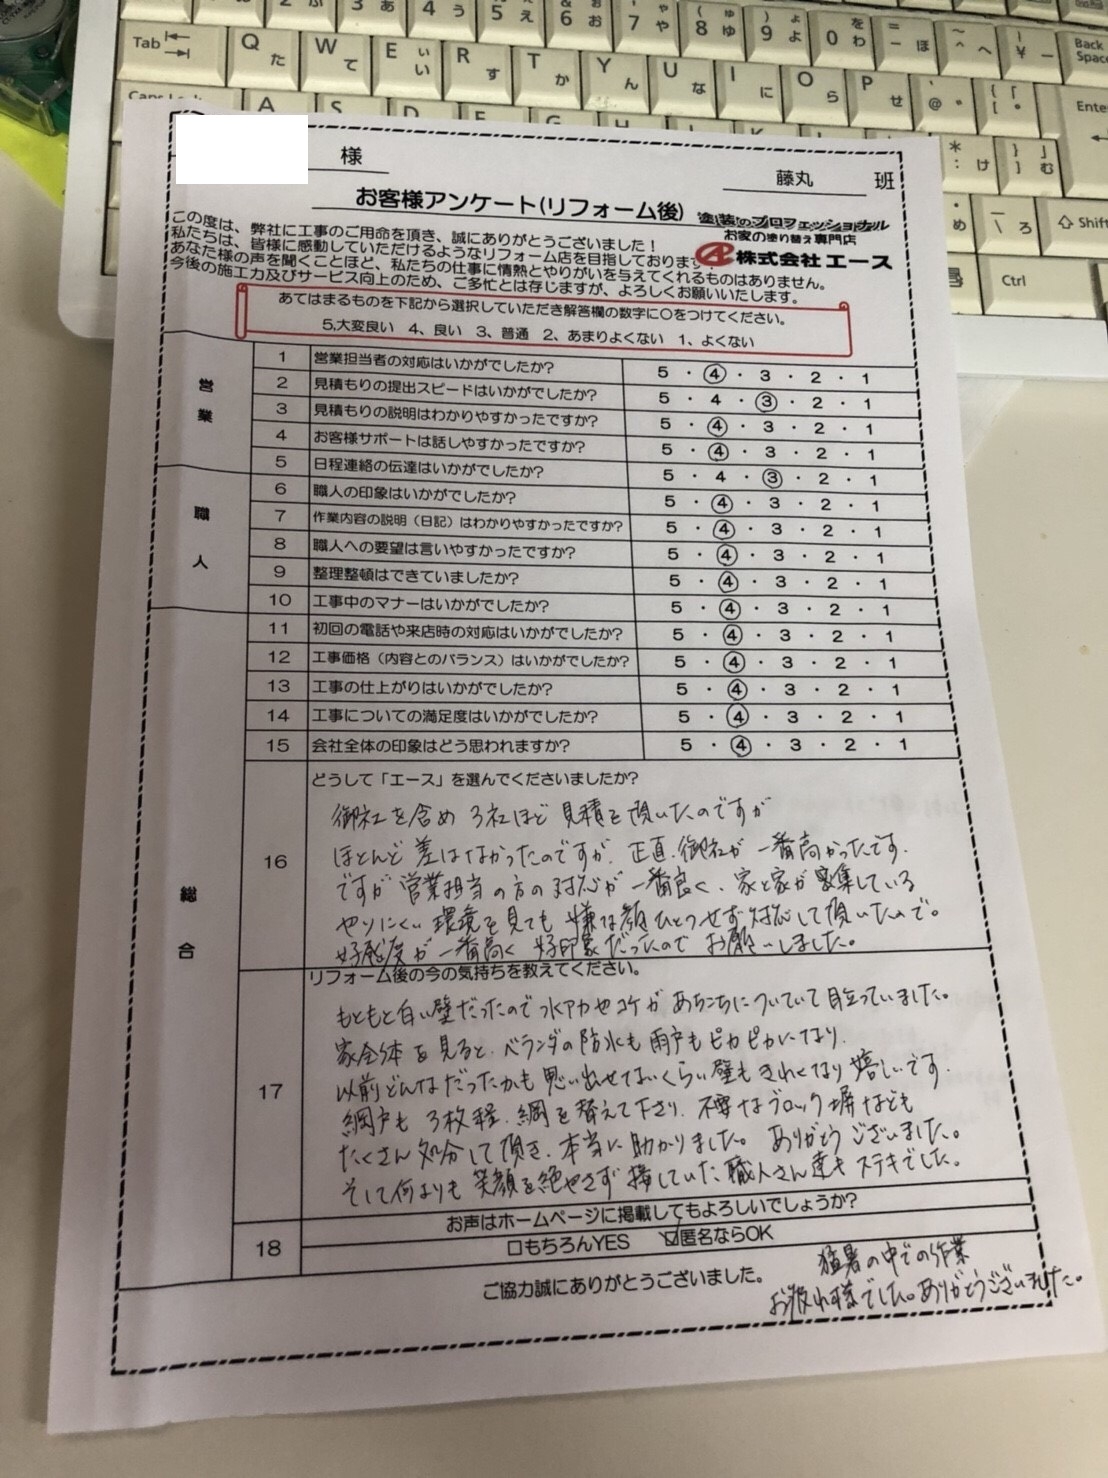 Tab
Q た
W て
E い
R す
T か
Y ん
U な
I に
O ら
P せ
Back Space
Enter
Shift
Ctrl
様
藤丸 班
お客様アンケート(リフォーム後)
塗装のプロフェッショナル
お家の塗り替え専門店
株式会社エース
この度は、弊社に工事のご用命を頂き、誠にありがとうございました!
私たちは、皆様に感動していただけるようなリフォーム店を目指しております
あなた様の声を聞くことほど、私たちの仕事に情熱とやりがいを与えてくれるものはありません。
今後の施工力及びサービス向上のため、ご多忙とは存じますが、よろしくお願いいたします。
あてはまるものを下記から選択していただき解答欄の数字に〇をつけてください。
5,大変良い 4、良い 3、普通 2、あまりよくない 1、よくない
営業
1 営業担当者の対応はいかがでしたか? 5・4・3・2・1
2 見積もりの提出スピードはいかがでしたか? 5・4・3・2・1
3 見積もりの説明はわかりやすかったですか? 5・4・3・2・1
4 お客様サポートは話しやすかったですか? 5・4・3・2・1
5 日程連絡の伝達はいかがでしたか? 5・4・3・2・1
職人
6 職人の印象はいかがでしたか? 5・4・3・2・1
7 作業内容の説明(日記)はわかりやすかったですか? 5・4・3・2・1
8 職人への要望は言いやすかったですか? 5・4・3・2・1
9 整理整頓はできていましたか? 5・4・3・2・1
10 工事中のマナーはいかがでしたか? 5・4・3・2・1
総合
11 初回の電話や来店時の対応はいかがでしたか? 5・4・3・2・1
12 工事価格(内容とのバランス)はいかがでしたか? 5・4・3・2・1
13 工事の仕上がりはいかがでしたか? 5・4・3・2・1
14 工事についての満足度はいかがでしたか? 5・4・3・2・1
15 会社全体の印象はどう思われますか? 5・4・3・2・1
16 どうして「エース」を選んでくださいましたか?
御社を含め3社ほど見積を頂いたのですが
ほとんど差はなかったのですが、正直、御社が一番高かったです.
ですが営業担当の方の対応が一番良く、家と家が密集している
やりにくい環境を見ても嫌な顔ひとつせず対応して頂いたので。
好感度が一番高く好印象だったのでお願いしました。
17 リフォーム後の今の気持ちを教えてください。
もともと白い壁だったので水アカやコケがあちこちについていて目立っていました。
家全体を見ると、ベランダの防水も雨戸もピカピカになり、
以前どんなだったかも思い出せないくらい壁もきれくなり嬉しいです.
網戸も3枚程、網を替えて下さり、不要なブロック塀なども
たくさん処分して頂き、本当に助かりました。ありがとうございました。
そして何よりも笑顔を絶やさず接していた職人さん達もステキでした。
18 お声はホームページに掲載してもよろしいでしょうか?
□もちろんYES ☑匿名ならOK
ご協力誠にありがとうございました。
猛暑の中での作業
お疲れ様でした。ありがとうございました。